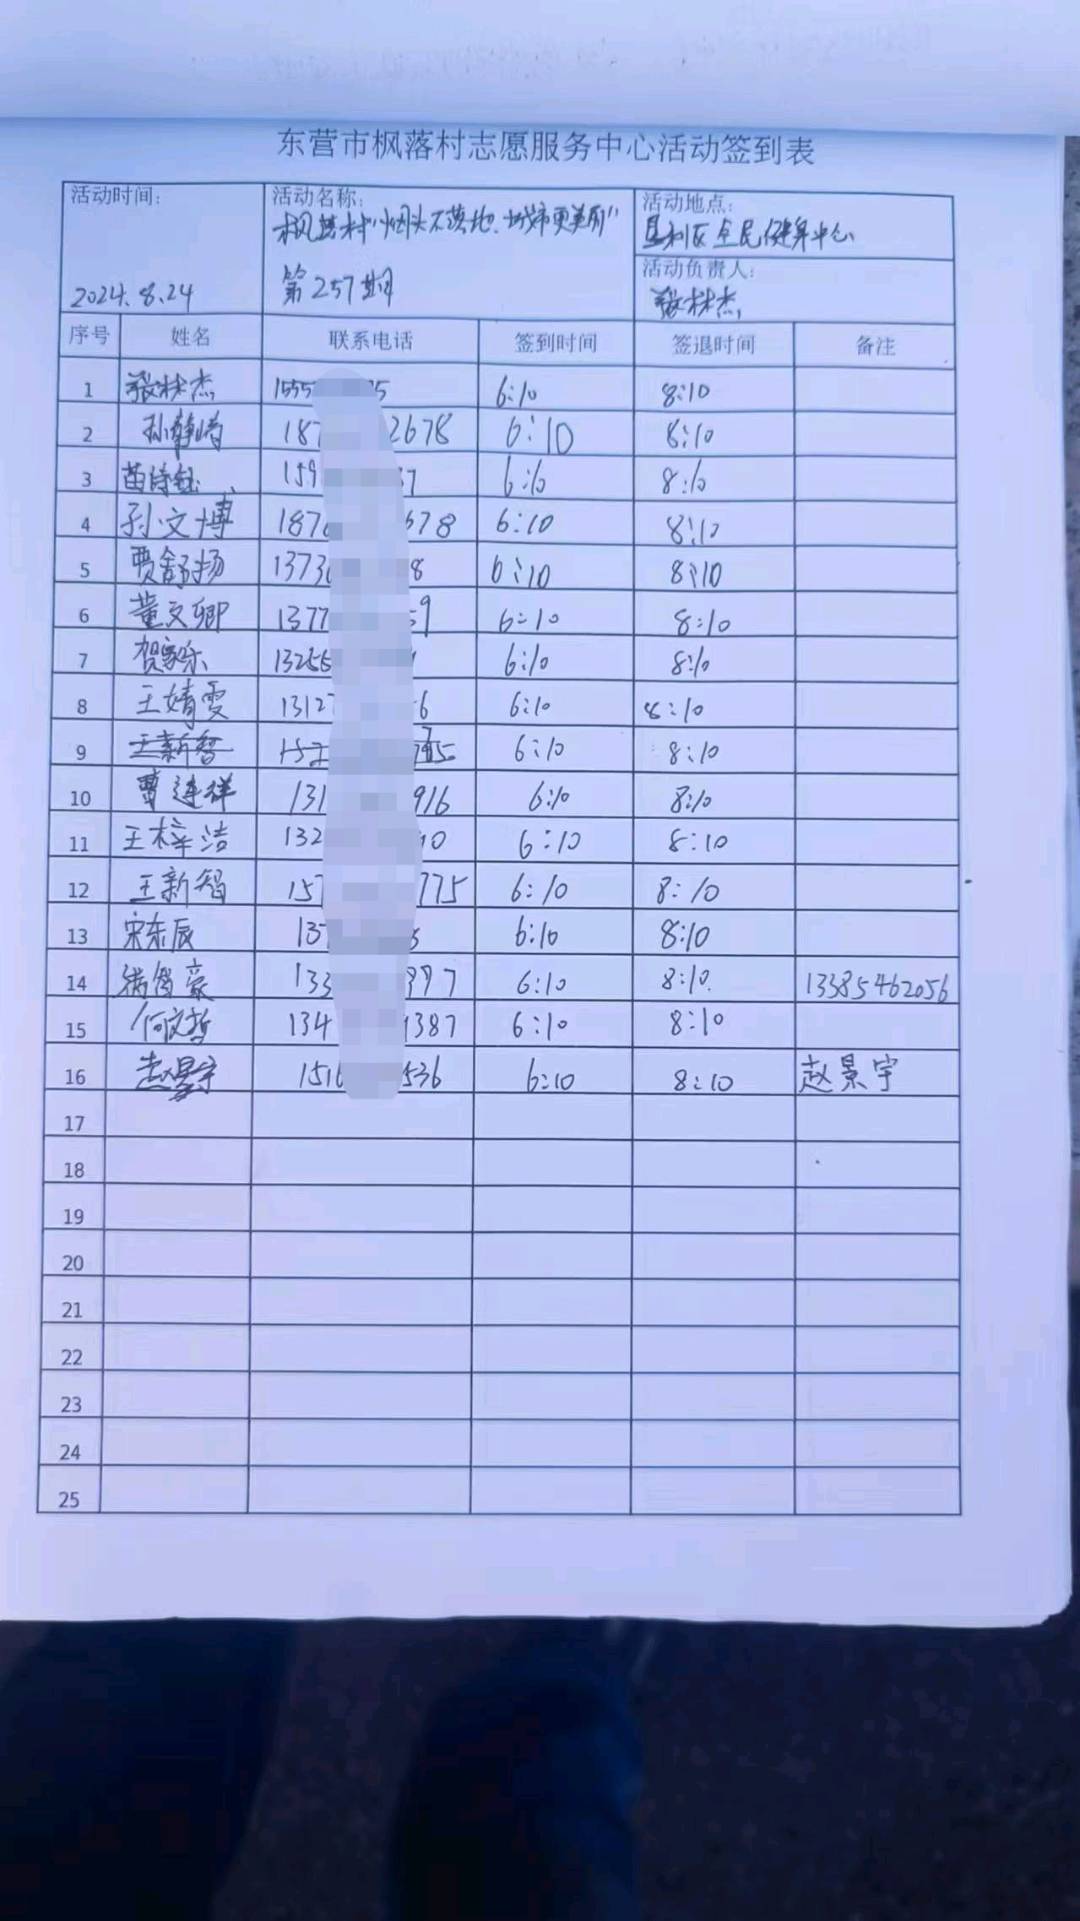 东营市枫落村志愿服务中心活动签到表
活动时间:
2024.8.24
活动名称:
枫落村"烟头不落地、城市更美丽"
第257期
活动地点:
垦利区全民健身中心
活动负责人:
张林杰
序号 姓名 联系电话 签到时间 签退时间 备注
1 张林杰 1535 5 6:10 8:10
2 孙静 187 2678 6:10 8:10
3 苗诗钰 159 37 6:10 8:10
4 孙文博 187 678 6:10 8:10
5 贾舒扬 1373 8 6:10 8:10
6 董文卿 1377 59 6:10 8:10
7 贺家乐 13255 6:10 8:10
8 王婧雯 1312 6 6:10 8:10
9 王新智 157 6:10 8:10
10 曹连祥 131 916 6:10 8:10
11 王梓洁 132 10 6:10 8:10
12 王新智 157 775 6:10 8:10
13 宋东辰 137 6:10 8:10
14 智豪 133 397 6:10 8:10. 13385462056
15 何文哲 134 1387 6:10 8:10
16 赵景宇 151 536 6:10 8:10 赵景宇
17
18
19
20
21
22
23
24
25